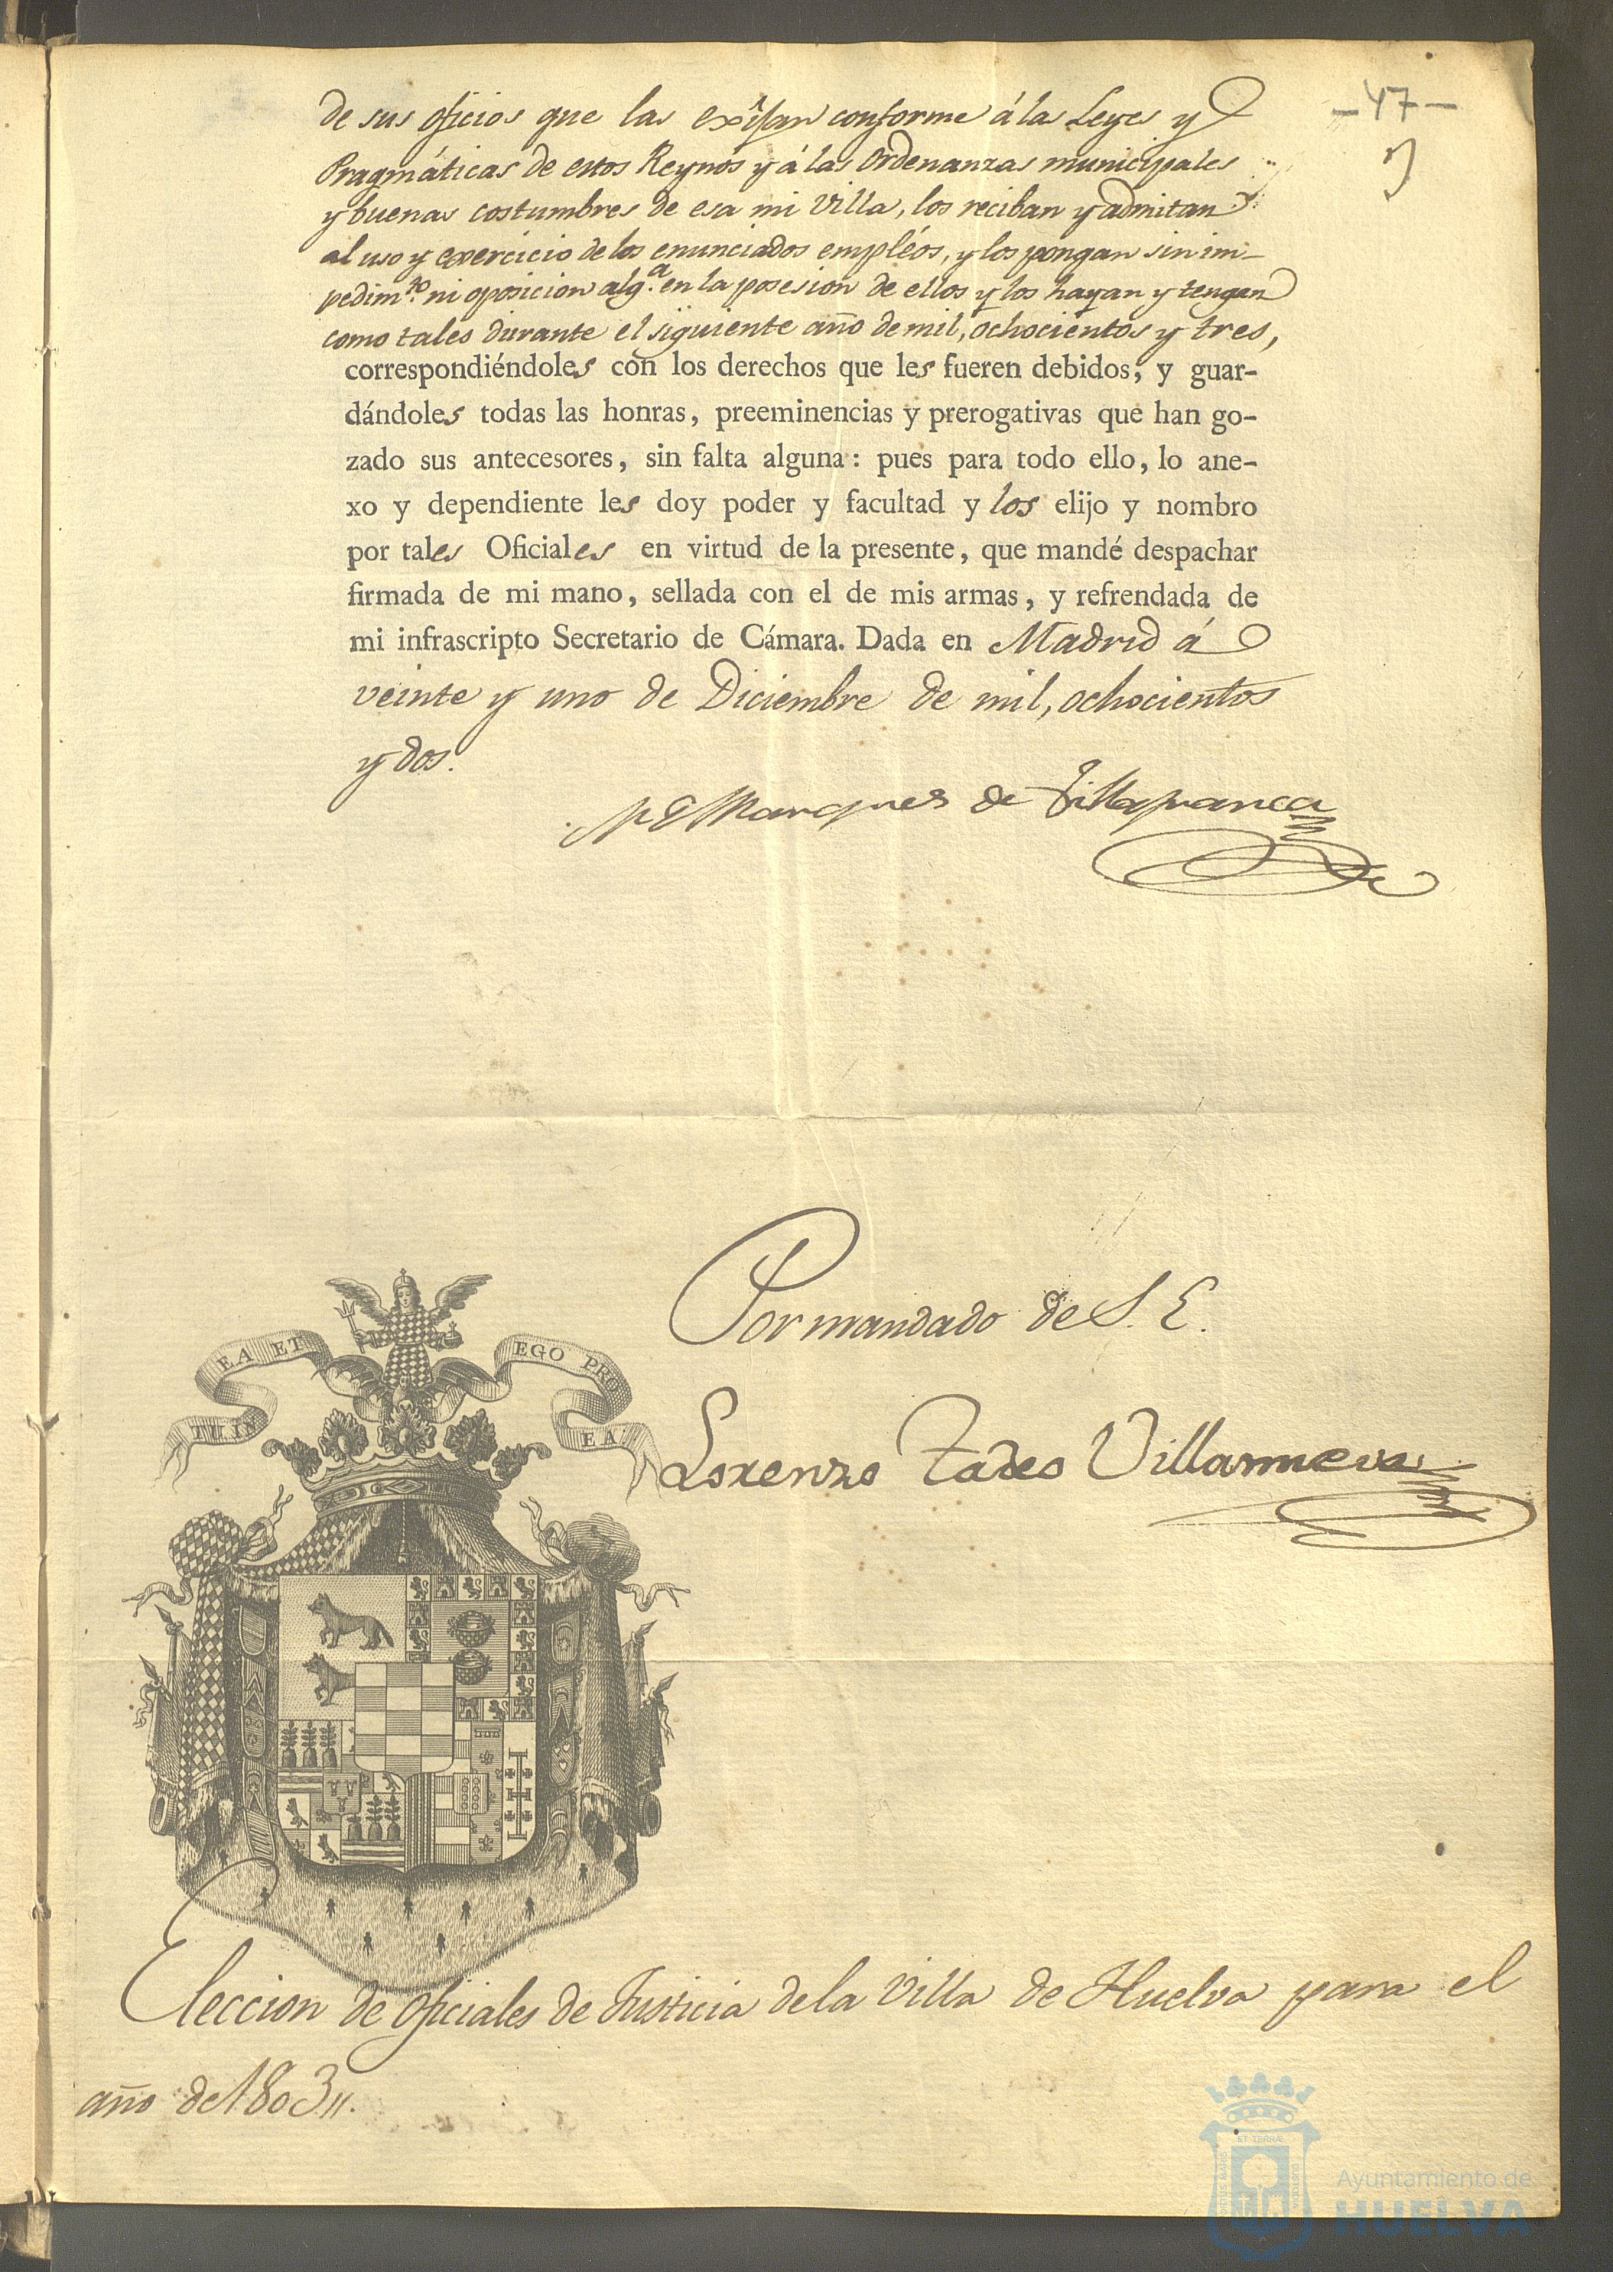 -47-
de sus oficios que las exîjan conforme á las Leyes y
Pragmáticas de estos Reynos y á las Ordenanzas municipales
y buenas costumbres de esa mi Villa, los reciban y admitan
al uso y exercicio de los enunciados empléos, y los pongan sin im-
pedim.to ni oposicion alg.a en la posesion de ellos y los hayan y tengan
como tales durante el siguiente año de mil, ochocientos y tres,
correspondiéndoles con los derechos que les fueren debidos, y guar-
dándoles todas las honras, preeminencias y prerogativas que han go-
zado sus antecesores, sin falta alguna: pues para todo ello, lo ane-
xo y dependiente les doy poder y facultad y los elijo y nombro
por tales Oficiales en virtud de la presente, que mandé despachar
firmada de mi mano, sellada con el de mis armas, y refrendada de
mi infrascripto Secretario de Cámara. Dada en Madrid á
veinte y uno de Diciembre de mil, ochocientos
y dos.
El Marques de Villafranca
Por mandado de S. E.
EA ET
EGO PRO
TUIN
EA
Lorenzo Tadeo Villanueva
Eleccion de Oficiales de Justicia de la Villa de Huelva para el
año de 1803.
Ayuntamiento de
HUELVA